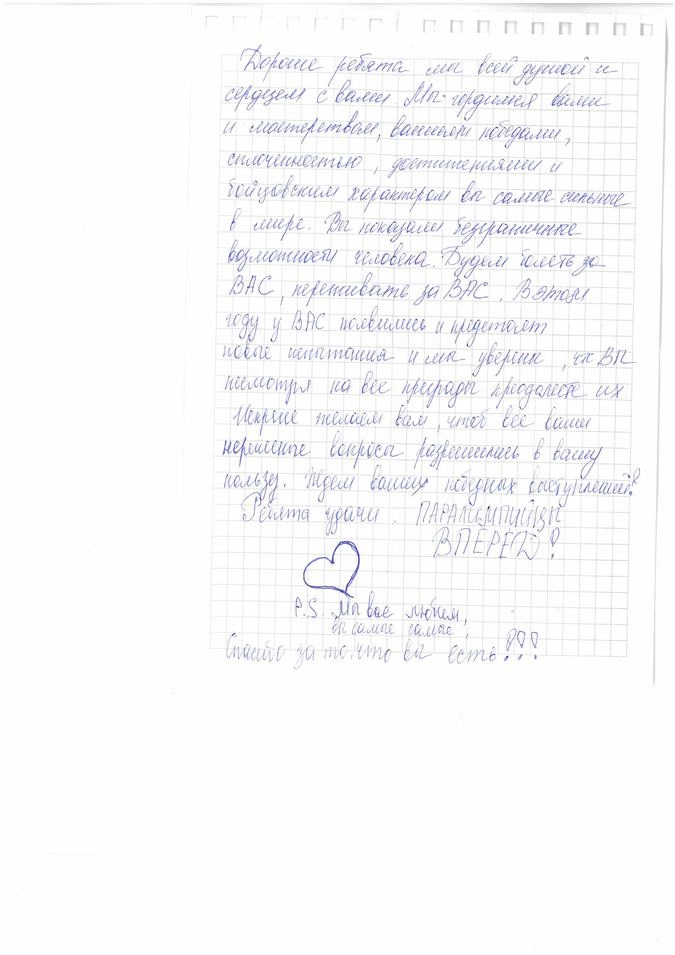 Дорогие ребята мы всей душой и
сердцем с вами. Мы гордимся вами
и мастерством, вашими победами,
сплоченностью, достижениями и
бойцовским характером вы самые сильные
в мире. Вы показали безграничные
возможности человека. Будем болеть за
ВАС, переживать за ВАС. В этом
году у ВАС появились и предстоят
новые испытания и мы уверены, что ВЫ
несмотря на все преграды преодолеете их
Искренне желаем вам, чтоб все ваши
нерешенные вопросы разрешились в вашу
пользу. Ждем ваших победных выступлений!
Ребята удачи. ПАРАЛИМПИЙЦЫ
ВПЕРЕД!
P.S. Мы вас любим,
вы самые самые,
Спасибо за то, что вы есть!!!